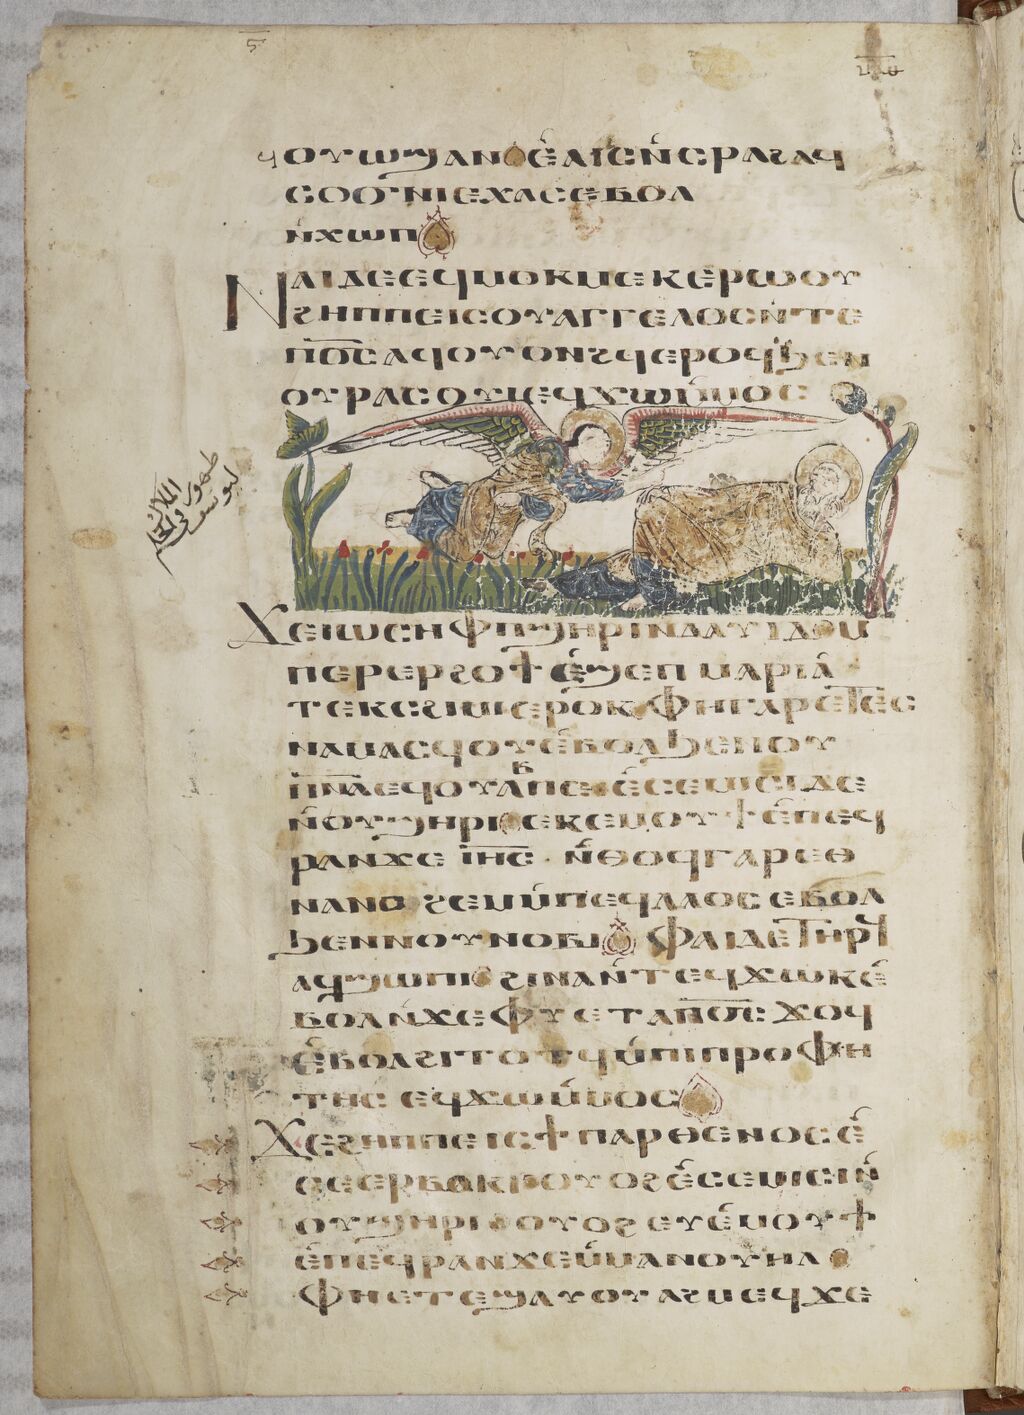 ϥⲟⲩⲱϣ ⲁⲛ ⲉ̀ⲁⲓⲥ ⲛ̀ⲥⲣⲁϩ ⲁϥ
ⲥⲟϭⲛⲓ ⲉⲭⲁⲥ ⲉⲃⲟⲗ
ⲛ̀ⲭⲱⲡ
ⲛⲁⲓ ⲇⲉ ⲉϥⲙⲟⲕⲙⲉⲕ ⲉⲣⲱⲟⲩ
ϩⲏⲡⲡⲉ ⲓⲥ ⲟⲩⲁⲅⲅⲉⲗⲟⲥ ⲛ̀ⲧⲉ
ⲡϭⲥ ⲁϥⲟⲩⲟⲛϩϥ ⲉⲣⲟϥ ϧⲉⲛ
ⲟⲩⲣⲁⲥⲟⲩⲓ ⲉϥϫⲱ ⲙ̀ⲙⲟⲥ
ظهور الملاك
ليوسف في الحلم
ϫⲉ ⲓⲱⲥⲏⲫ ⲡϣⲏⲣⲓ ⲛⲇⲁⲩⲓⲇ ⲙ
ⲡⲉⲣⲉⲣϩⲟϯ ⲉ̀ϣⲉⲡ ⲙⲁⲣⲓⲁ̀
ⲧⲉⲕⲥϩⲓⲙⲓ ⲉⲣⲟⲕ ⲫⲏ ⲅⲁⲣ ⲉ̀ⲧⲉⲥ
ⲛⲁⲙⲁⲥϥ ⲟⲩⲉ̀ⲃⲟⲗ ϧⲉⲛ ⲟⲩ
ⲡ̅ⲛ̅ⲁ̅ ⲉϥⲟⲩⲁⲃ ⲡⲉ ⲉ̀ⲥⲉⲙⲓⲥⲓ ⲇⲉ
ⲛ̀ⲟⲩϣⲏⲣⲓ ⲉⲕⲉⲙⲟⲩϯ ⲉ̀ⲡⲉϥ
ⲣⲁⲛ ϫⲉ ⲓⲏⲥ ⲛ̀ⲑⲟϥ ⲅⲁⲣ ⲉⲑ
ⲛⲁⲛⲟϩⲉⲙ ⲙ̀ⲡⲉϥⲗⲁⲟⲥ ⲉⲃⲟⲗ
ϧⲉⲛ ⲛⲟⲩⲛⲟⲃⲓ ⲫⲁⲓ ⲇⲉ ⲧⲏⲣϥ
ⲁϥϣⲱⲡⲓ ϩⲓⲛⲁ ⲛ̀ⲧⲉϥϫⲱⲕ ⲉ̀
ⲃⲟⲗ ⲛ̀ϫⲉ ⲫⲏ ⲉⲧⲁ ⲡϭⲥ ϫⲟϥ
ⲉ̀ⲃⲟⲗ ϩⲓⲧⲟⲧϥ ⲙ̀ⲡⲓⲡⲣⲟⲫⲏ
ⲧⲏⲥ ⲉϥϫⲱ ⲙ̀ⲙⲟⲥ
ϫⲉ ϩⲏⲡⲡⲉ ⲓⲥ ϯⲡⲁⲣⲑⲉⲛⲟⲥ ⲉ̀
ⲥⲉⲉⲣⲃⲟⲕⲓ ⲟⲩⲟϩ ⲉ̀ⲥⲉⲙⲓⲥⲓ ⲛ̀
ⲟⲩϣⲏⲣⲓ ⲟⲩⲟϩ ⲉⲩⲉ̀ⲙⲟⲩϯ
ⲉ̀ⲡⲉϥⲣⲁⲛ ϫⲉ ⲉⲙⲙⲁⲛⲟⲩⲏⲗ
ⲫⲏ ⲉⲧⲉϣⲁⲩⲟⲩⲁϩⲙⲉϥ ϫⲉ